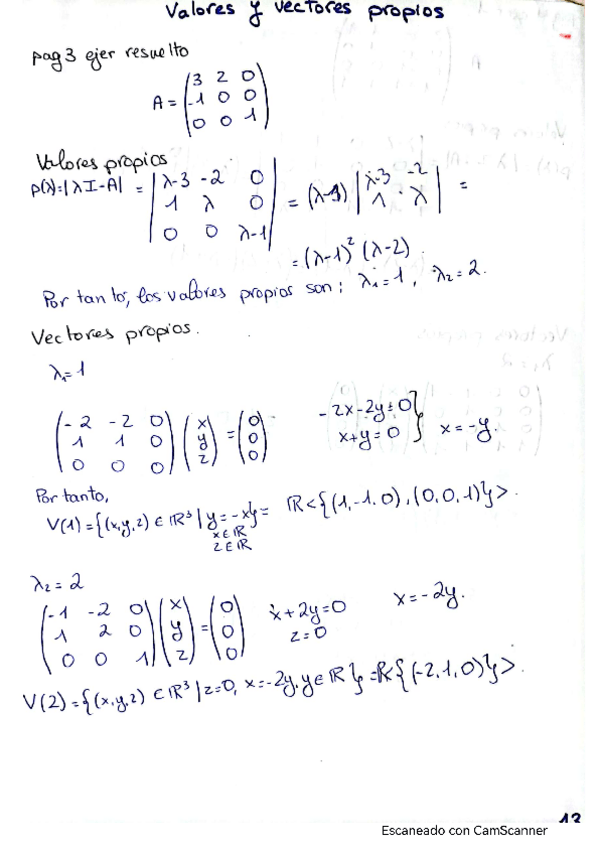 Valores y vectores propios
pag 3 ejer resuelto
A = (3 2 0
-1 0 0
0 0 1)
Valores propios
p(λ)=|λI-A| = |λ-3 -2 0
1 λ 0
0 0 λ-1| = (λ-1) |λ-3 -2
1 λ| =
= (λ-1)² (λ-2).
Por tanto, los valores propios son: λ₁=1, λ₂=2.
Vectores propios.
λ₁=1
(-2 -2 0
1 1 0
0 0 0) (x
y
z) = (0
0
0)
-2x-2y=0
x+y=0 } x=-y.
Por tanto,
V(1)={(x,y,z) ∈ ℝ³ | y=-x} = ℝ<{(1,-1,0),(0,0,1)}>.
x∈ℝ
z∈ℝ
λ₂=2
(-1 -2 0
1 2 0
0 0 1) (x
y
z) = (0
0
0)
x+2y=0
z=0
x=-2y.
V(2)={(x,y,z) ∈ ℝ³ | z=0, x=-2y, y∈ℝ} = ℝ{(-2,1,0)}>.
13
Escaneado con CamScanner